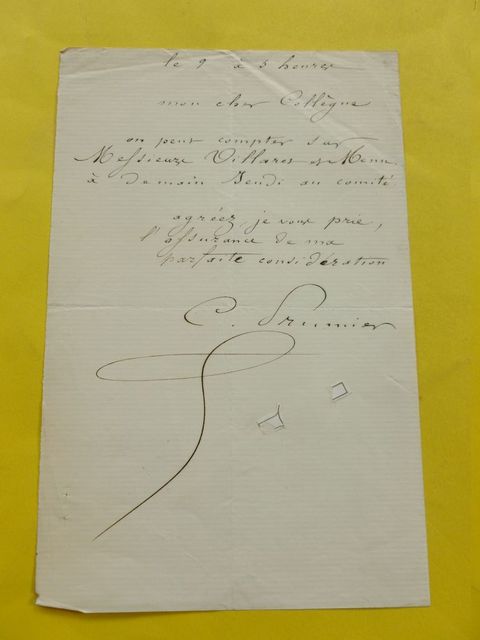 le 9 à 5 heures
mon cher Collègue
on peut compter sur
Messieurs Villaret et Menu
à demain Jeudi au comité
agréez, je vous prie,
l'assurance de ma
parfaite considération
C. Prumier